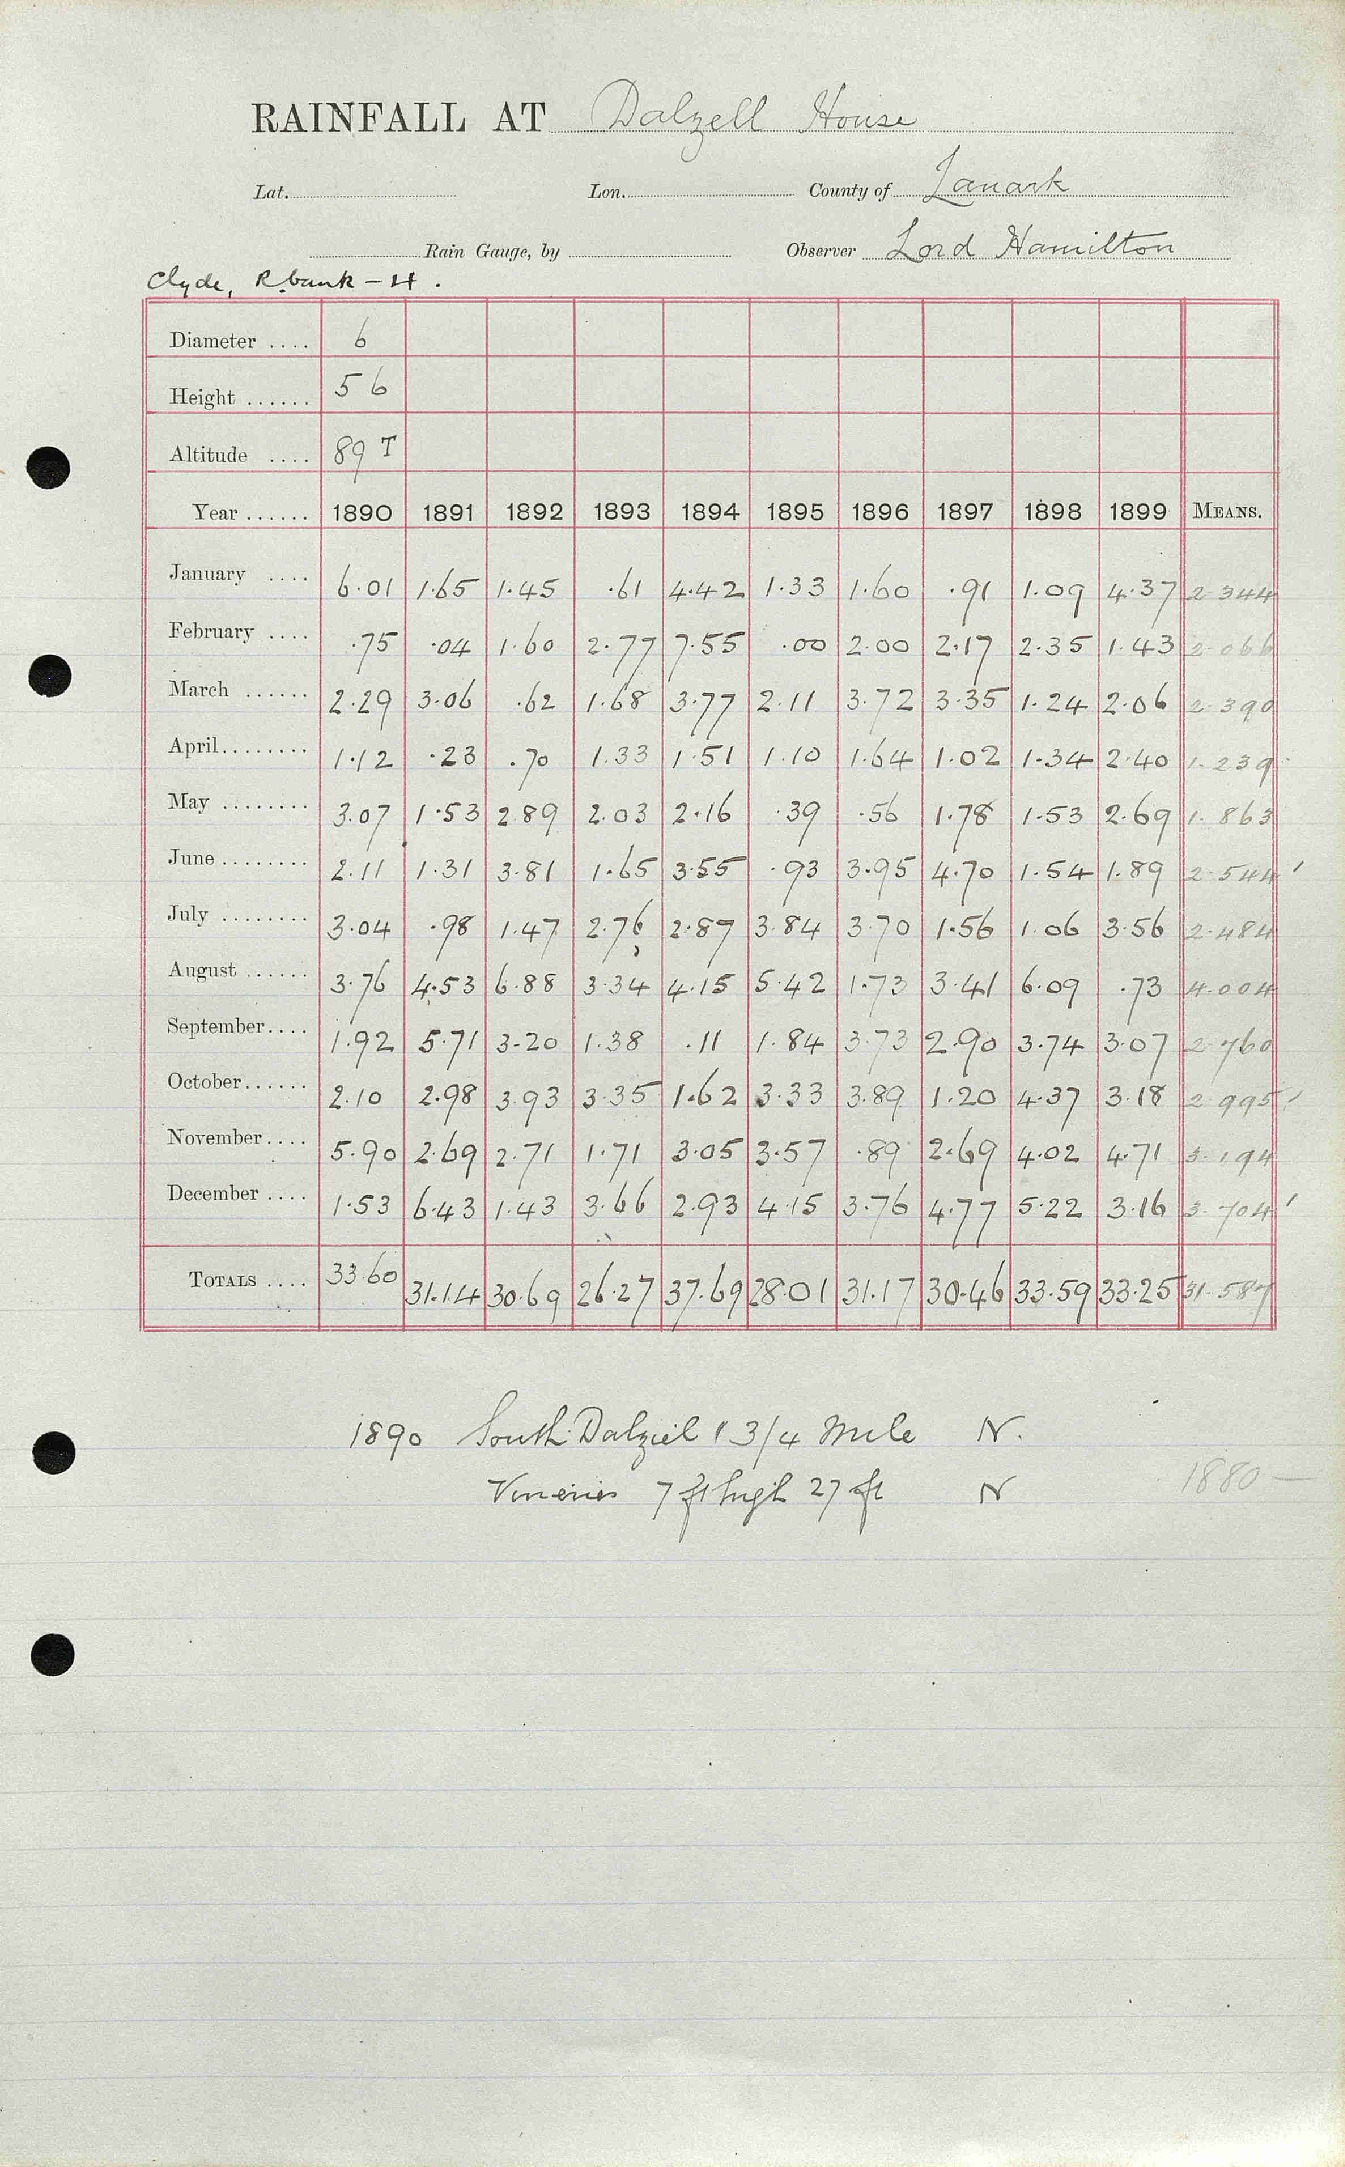 RAINFALL AT Dalzell House
Lat. Lon. County of Lanark
Rain Gauge, by Observer Lord Hamilton
Clyde, R. bank - H.
Diameter .... 6
Height ...... 5 6
Altitude .... 89 T
Year ...... 1890 1891 1892 1893 1894 1895 1896 1897 1898 1899 MEANS.
January .... 6.01 1.65 1.45 .61 4.42 1.33 1.60 .91 1.09 4.37 2.344
February .... .75 .04 1.60 2.77 7.55 .00 2.00 2.17 2.35 1.43 2.066
March ...... 2.29 3.06 .62 1.68 3.77 2.11 3.72 3.35 1.24 2.06 2.390
April........ 1.12 .23 .70 1.33 1.51 1.10 1.64 1.02 1.34 2.40 1.239
May ........ 3.07 1.53 2.89 2.03 2.16 .39 .56 1.78 1.53 2.69 1.863
June ........ 2.11 1.31 3.81 1.65 3.55 .93 3.95 4.70 1.54 1.89 2.544'
July ........ 3.04 .98 1.47 2.76 2.87 3.84 3.70 1.56 1.06 3.56 2.484
August ...... 3.76 4.53 6.88 3.34 4.15 5.42 1.73 3.41 6.09 .73 4.004
September.... 1.92 5.71 3.20 1.38 .11 1.84 3.73 2.90 3.74 3.07 2.760
October...... 2.10 2.98 3.93 3.35 1.62 3.33 3.89 1.20 4.37 3.18 2.995'
November.... 5.90 2.69 2.71 1.71 3.05 3.57 .89 2.69 4.02 4.71 3.194
December .... 1.53 6.43 1.43 3.66 2.93 4.15 3.76 4.77 5.22 3.16 3.704'
TOTALS .... 33.60 31.14 30.69 26.27 37.69 28.01 31.17 30.46 33.59 33.25 31.587
1890 South Dalziel 1 3/4 Mile N.
Vineries 7 ft high 27 ft N
1880 —